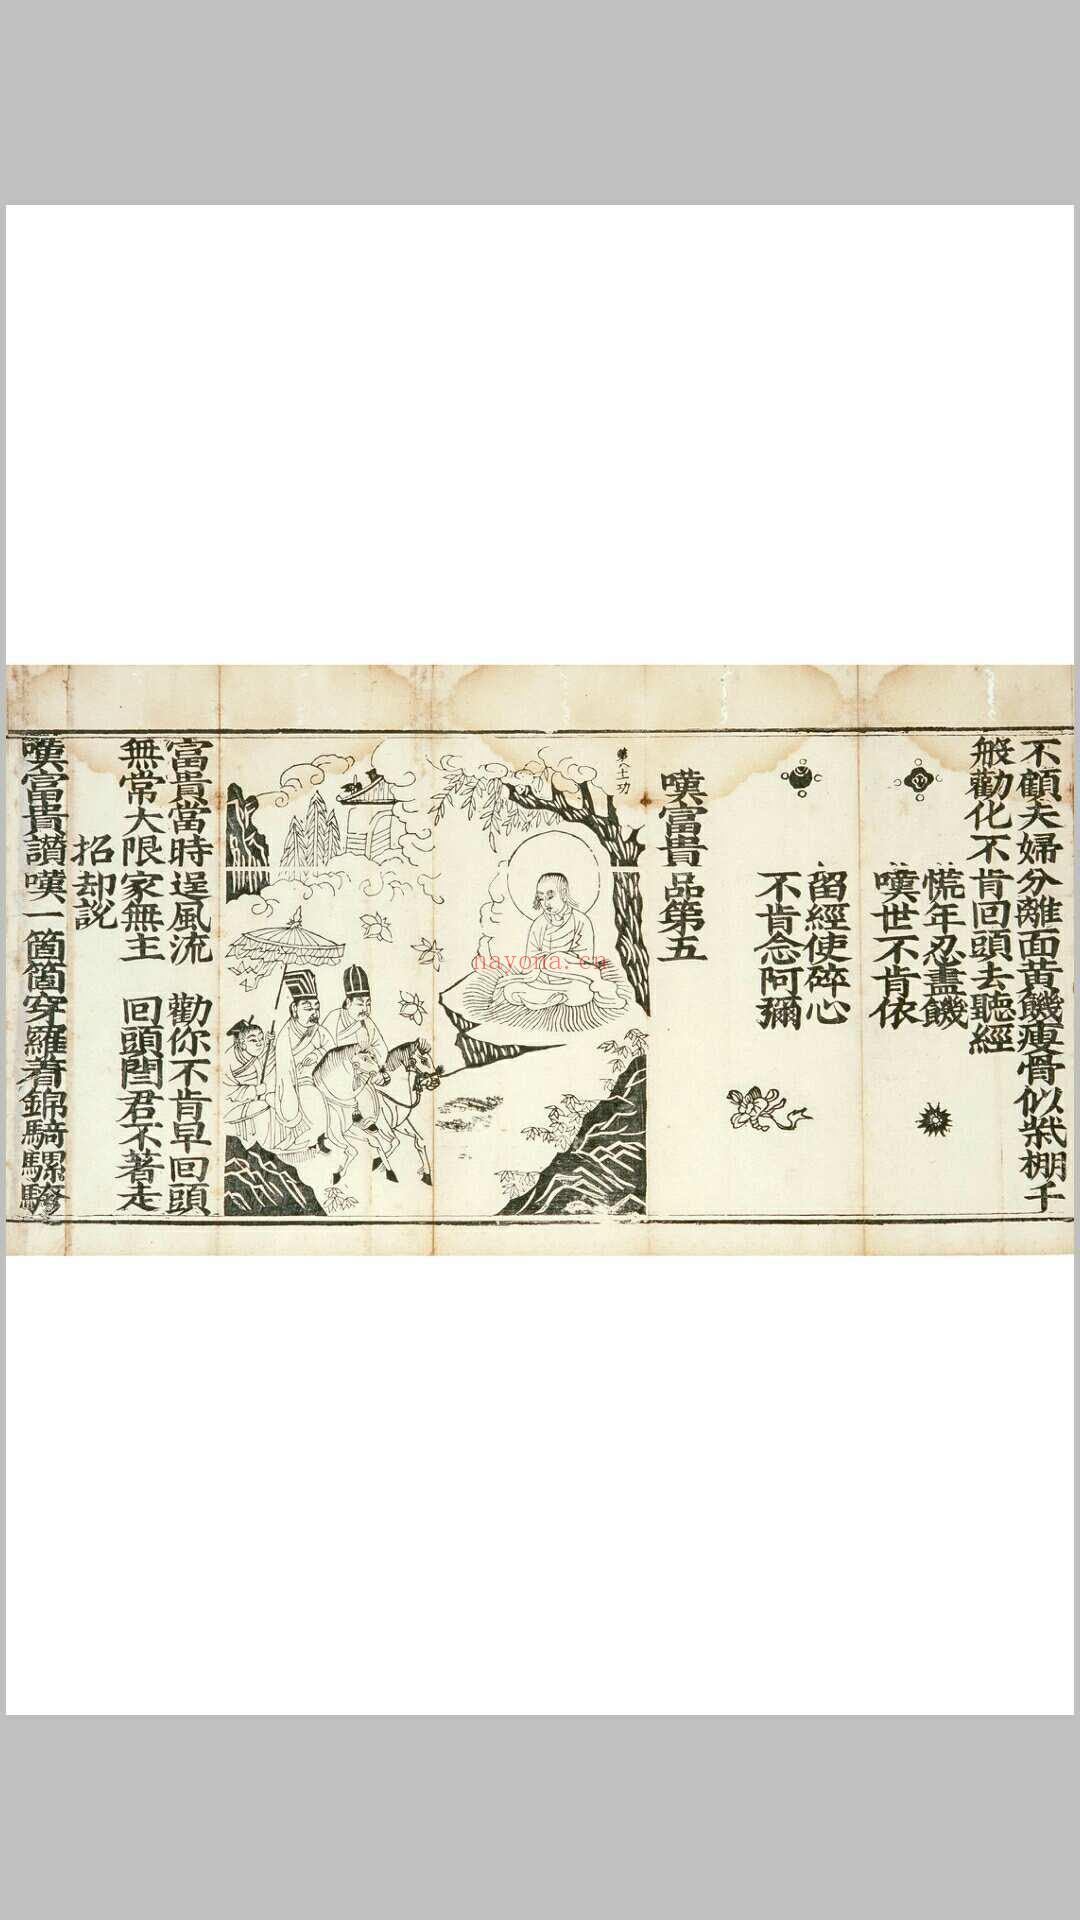 不顧夫婦分離面黃饑瘦骨似柴棚千
般勸化不肯回頭去聽經
慌年忍盡饑
嘆世不肯依
留經使碎心
不肯念阿彌
嘆富貴品第五
富貴當時逞風流 勸你不肯早回頭
無常大限家無主 回頭閻君不著走
招却説
嘆富貴讃嘆一箇箇穿羅着錦騎騾
nayona.cn